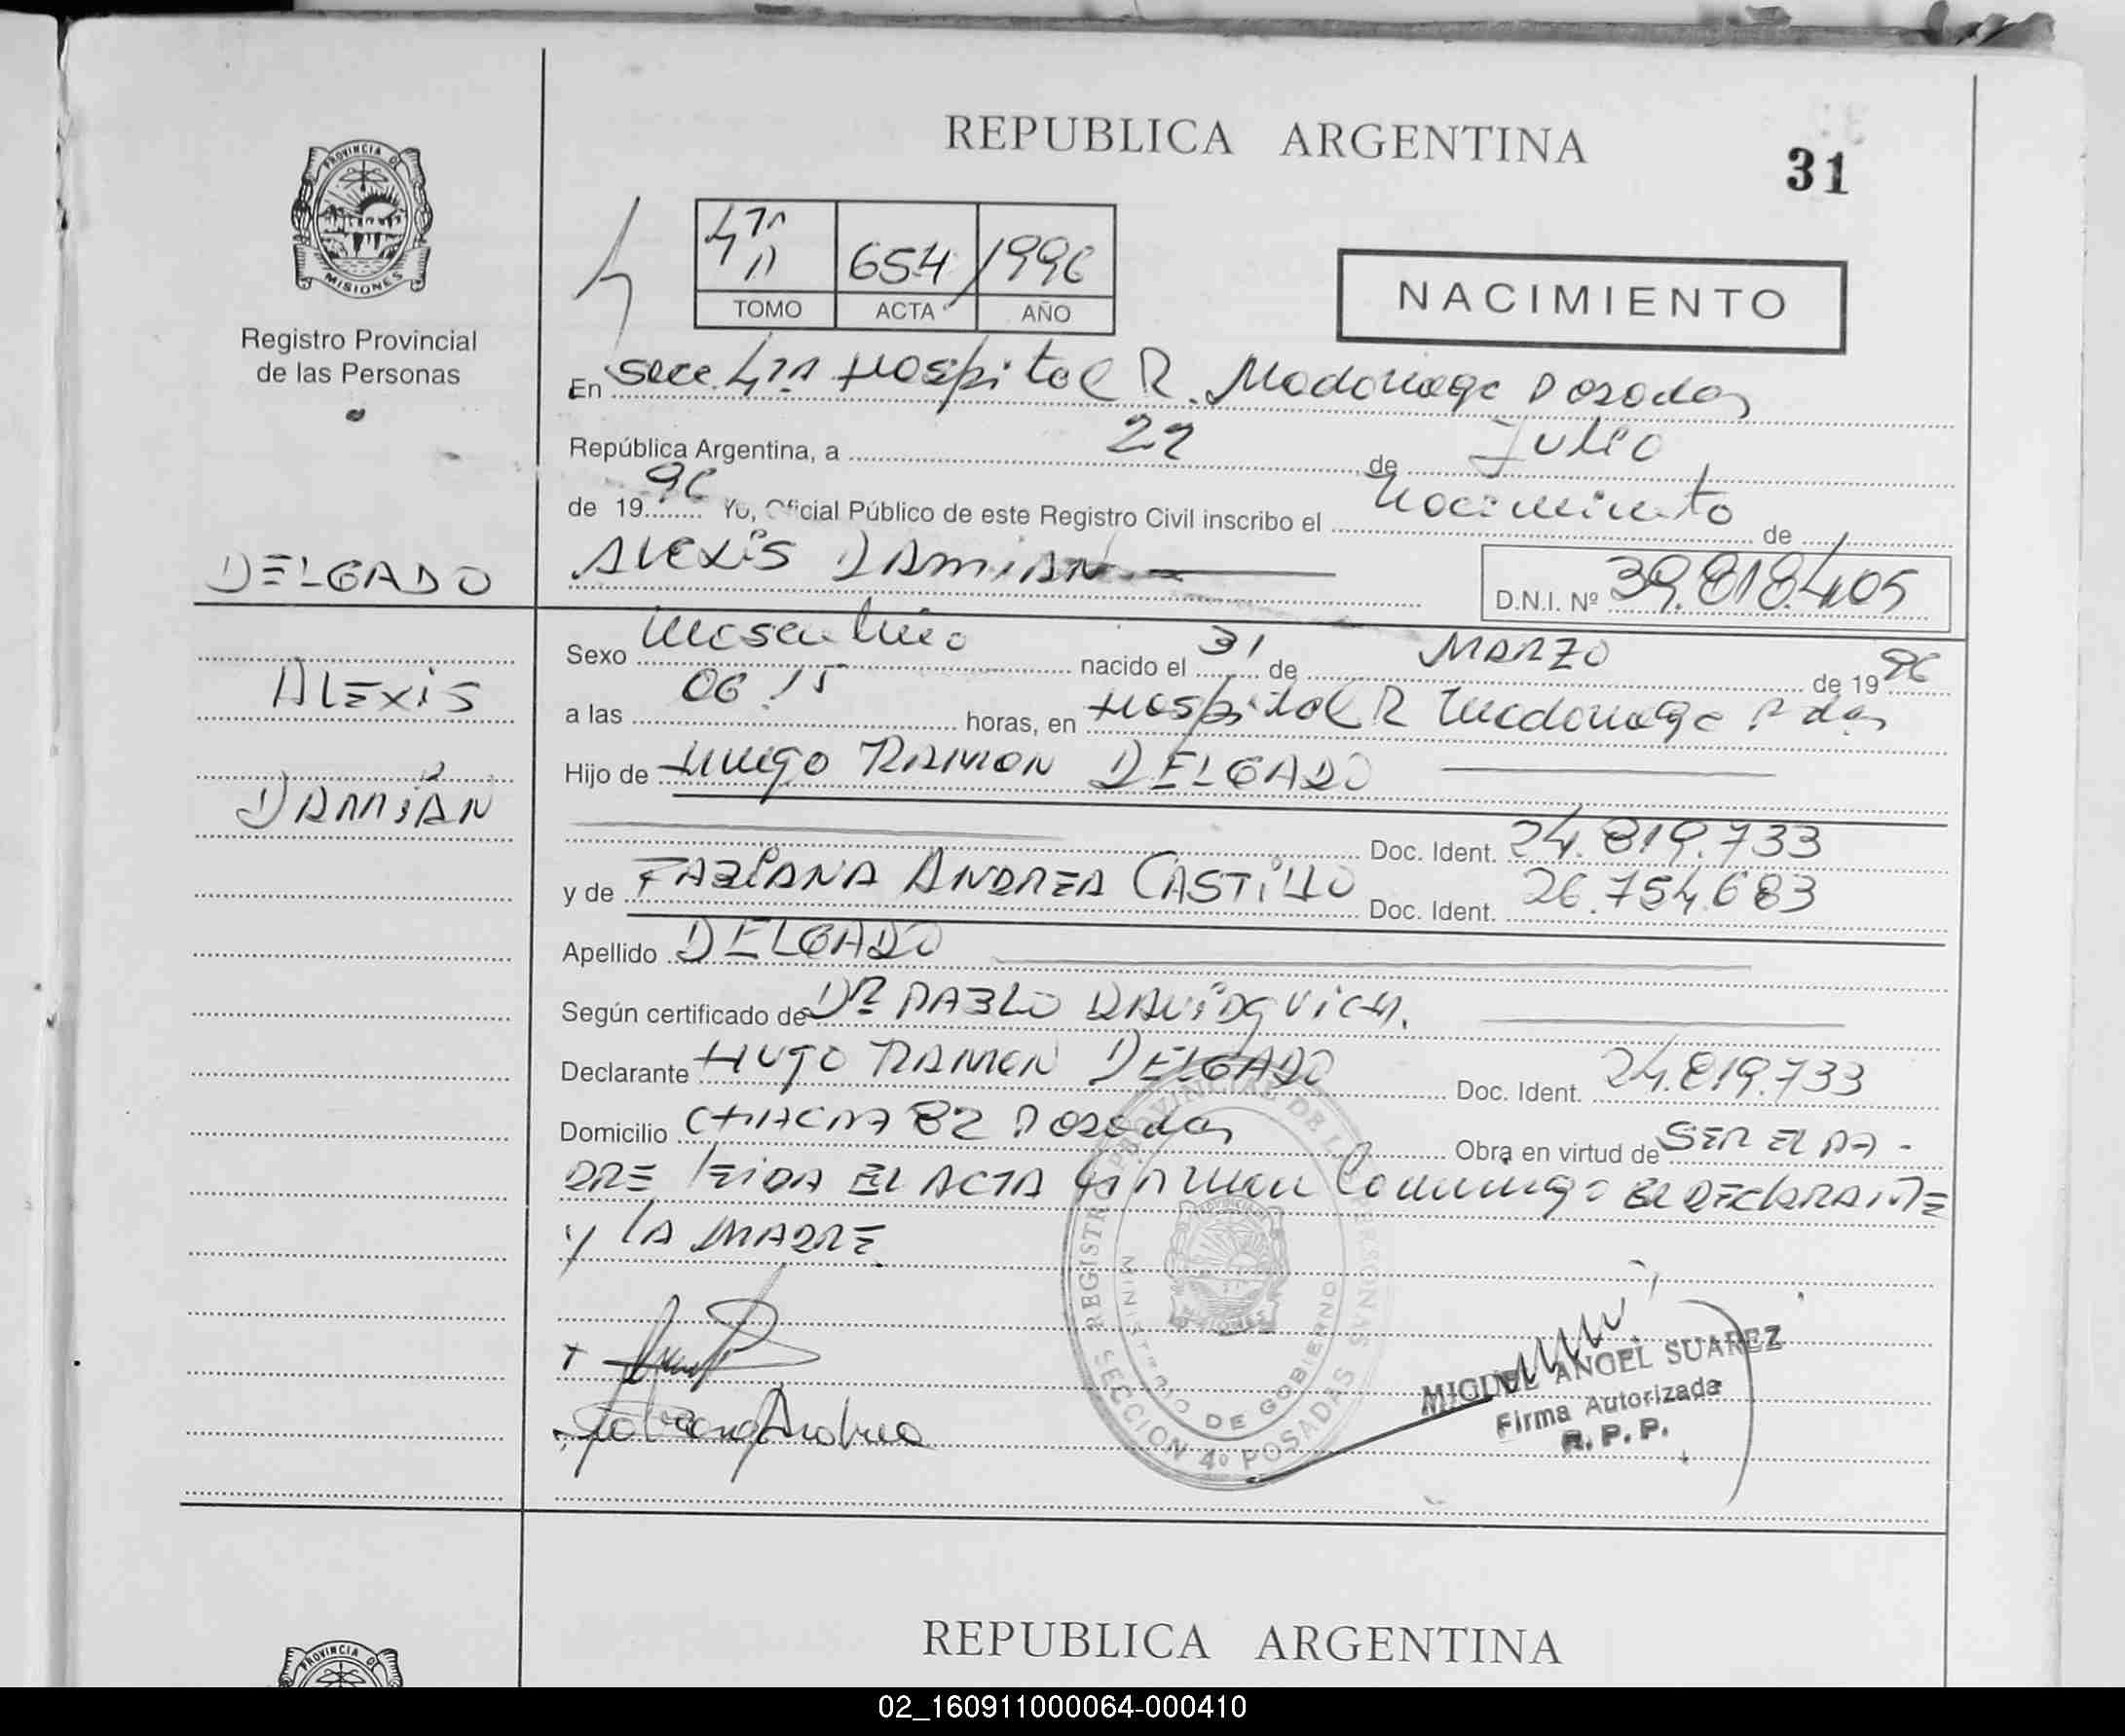 REPUBLICA ARGENTINA
31
PROVINCIA DE
MISIONES
Registro Provincial
de las Personas
4ta 654 1996
TOMO ACTA AÑO
NACIMIENTO
En Secc. 4ta Hospital R. Madariaga Posadas
República Argentina, a 22 de Julio
de 1996 Yo, Oficial Público de este Registro Civil inscribo el nacimiento de
DELGADO
ALEXIS DAMIAN
D.N.I. Nº 39.818.405
Sexo masculino nacido el 31 de MARZO de 1996
ALEXIS
a las 06:15 horas, en Hospital R Madariaga Pdas
Hijo de HUGO RAMON DELGADO
DAMIÁN
Doc. Ident. 24.819.733
y de FABIANA ANDREA CASTILLO Doc. Ident. 26.754.683
Apellido DELGADO
Según certificado de DR PABLO
Declarante HUGO RAMON DELGADO Doc. Ident. 24.819.733
Domicilio CHACRA 82 Posadas Obra en virtud de SER EL PA-
DRE LEIDA EL ACTA firman conmigo EL DECLARANTE
Y LA MADRE.
REGISTRO PROVINCIAL DE LAS PERSONAS
MINISTERIO DE GOBIERNO
SECCION 4º POSADAS
MISIONES
Fabiana Andrea
MIGUEL ANGEL SUAREZ
Firma Autorizada
R. P. P.
REPUBLICA ARGENTINA
PROVINCIA DE
02_160911000064-000410